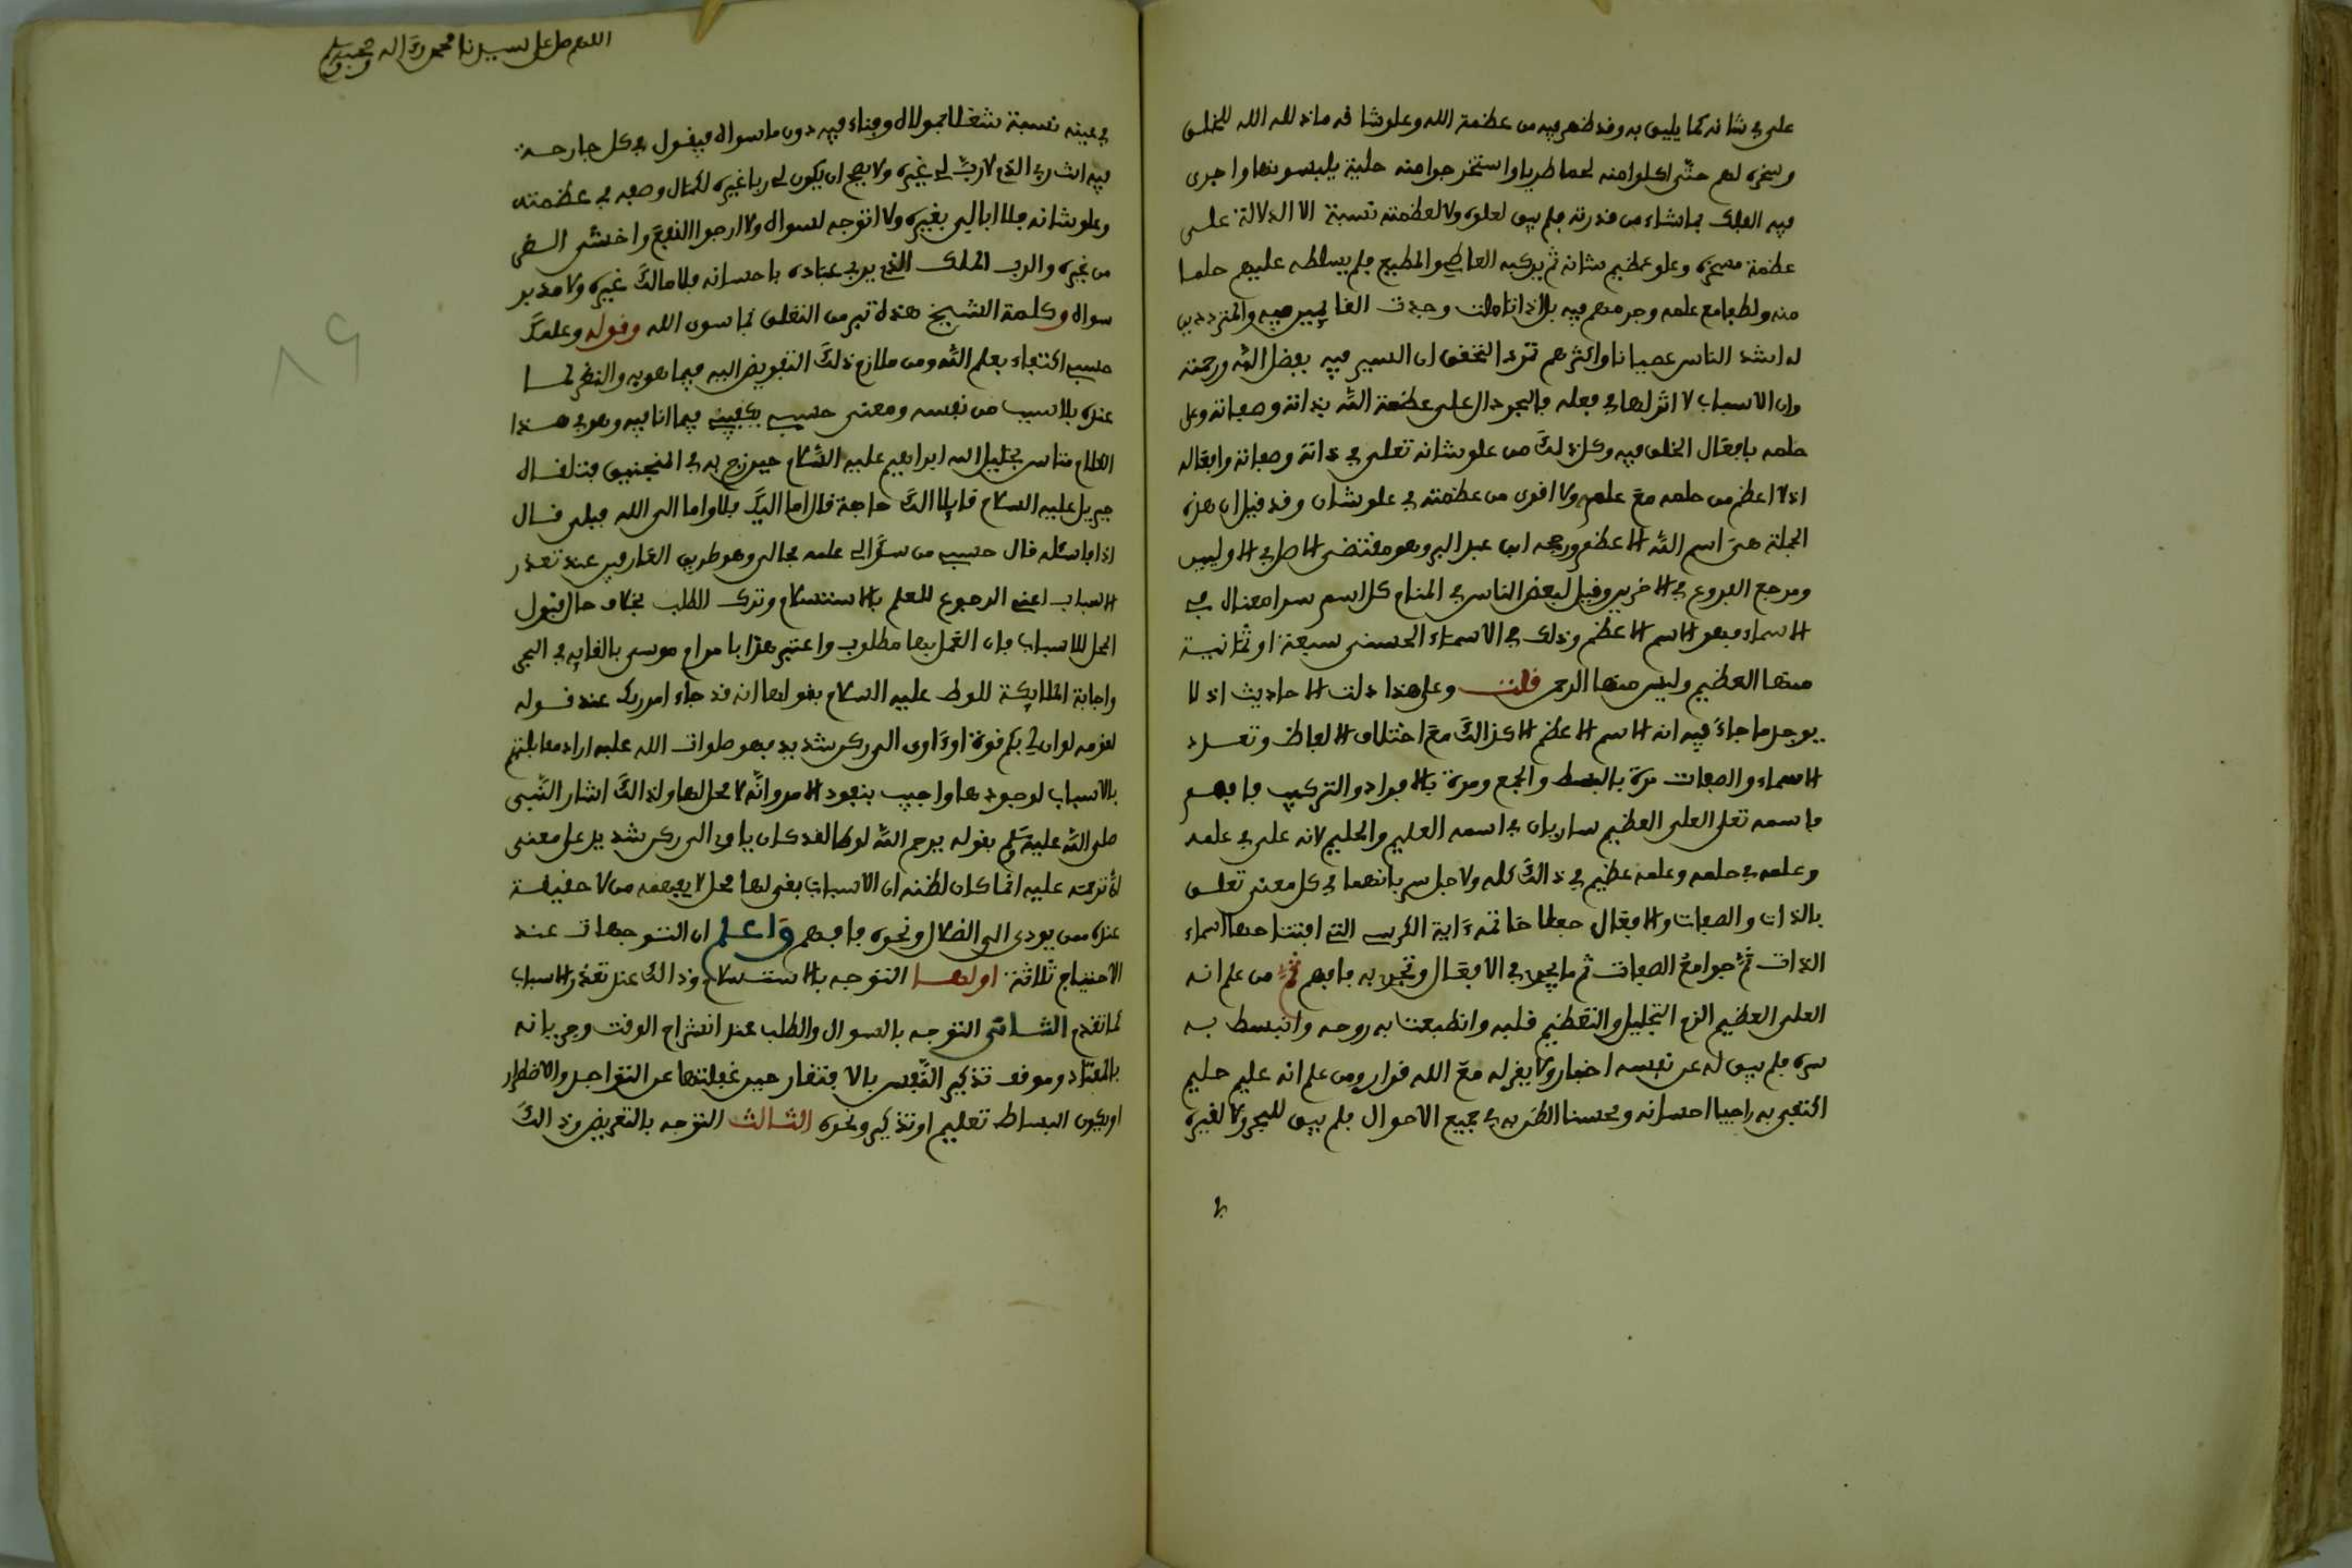 على في شانه كما يليق به وقد ظهر فيه من عظمة الله وعلو شانه ما ذلله الله للخلق
وسخره لهم حتى اكلوا منه لحما طريا واستخرجوا منه حلية يلبسونها واجرى
فيه الفلك بما شاء من قدرته فلم يبق لعلوه ولا لعظمته نسبة الا الدلالة على
عظمة مسخره وعلو عظيم شانه ثم يركبه العاصي والمطيع فلم يسلطه عليهم حلما
منه ولطفا مع علمه وجرمهم فيه بل اذا تاملت وجدت الغالبين فيه والمترددين
له اشد الناس عصيانا واكثرهم ترد التحقق ان السير فيه بفضل الله ورحمته
وان الاسباب لا اثر لها في فعله فالبحر دال على عظمة الله بذاته وصفاته وعلى
حلمه بافعال الخلق فيه وكل ذلك من علو شانه تعلى في ذاته وصفاته وافعاله
اذ لا اعظم من حلمه مع علمه ولا اقوى من عظمته في علو شان وقد قيل ان هذه
الجملة هي اسم الله الاعظم ورجحه ابن عبد البر وهو مقتضى الاصل في الاوليين
ومرجع الفروع في الاخرين وقيل لبعض الناس في المنام كل اسم سرا معناه في
الاسماء فهو الاسم الاعظم وذلك في الاسماء الحسنى سبعة او ثمانية
منها العظيم وليس منها الرحمن قلت وعلى هذا دلت الاحاديث اذ لا
يوجد ما جاء فيه انه الاسم الاعظم الا كذالك مع اختلاف الالفاظ وتعدد
الاسماء والصفات مرة بالبسط والجمع ومرة بالافراد والتركيب فافهم
فاسمه تعلى العلي العظيم ساريان في اسمه العليم والحليم لانه علي في علمه
وعلمه في حلمه وعلمه عظيم في ذالك كله ولاجل سريانهما في كل معنى تعلق
بالذات والصفات والافعال جعلا خاتمة ءاية الكرسي التي افتتاحها اسماء
الذات ثم جوامع الصفات ثم ما يجري في الافعال وتجري به فافهم ثم من علم انه
العلي العظيم الزم التجليل والتعظيم قلبه وانطبعت به روحه وانبسط به
سره فلم يبق له عن نفسه اخبار ولا يقر له مع الله قرار ومن علم انه عليم حليم
اكتفى به راجيا احسانه ومحسنا الظن به في جميع الاحوال فلم يبق للبحر ولا لغيره
اللهم صل على سيدنا محمد وءاله وصحبه وسلم
في عينه نسبة شغلا بمولاه وفناء فيه دون ما سواه فيقول في كل جارحة
فيه انت ربي الذي لا رب لي غيره ولا يصح ان يكون لي ربا غيره لكمال وصفه في عظمته
وعلو شانه فلا ابالي بغيره ولا اتوجه لسواه ولا ارجوا النفع واخشى الضر
من غيره والرب الملك الذي يربي عباده باحسانه فلا مالك غيره ولا مدبر
سواه وكلمة الشيخ هذه تبر من التعلق بما سوى الله وقوله وعلمك
حسبي اكتفاء بعلم الله ومن ملازم ذلك التفويض اليه فيما هو به والنظر لما
عنده بلا سبب من نفسه ومعنى حسبي يكفيني فيما انا فيه وهو في هذا
الكلام متاس بخليل الله ابراهيم عليه السلام حين زج به في المنجنيق فتلقاه
جبريل عليه السلام قايلا الك حاجة قال اما اليك فلا واما الى الله فبلى قال
اذا فاسئله قال حسبي من سؤالي علمه بحالي وهو طريق العارفين عند تعذر
الاسباب اعني الرجوع للعلم بالاستسلام وترك الطلب بخلاف حال قبول
المحل للاسباب فان العمل بها مطلوب واعتبر هذا بامر ام موسى بالقايه في اليم
واجابة الملايكة للوط عليه السلام بقولها انه قد جاء امر ربك عند قوله
لقومه لو ان لي بكم قوة او ءاوي الى ركن شديد فهو صلوات الله عليه اراد مقابلتهم
بالاسباب لوجودها واجيب بنفوذ الامر وانه لا محل لها ولذالك اشار النبي
صلى الله عليه وسلم بقوله يرحم الله لوطا لقد كان ياوي الى ركن شديد على معنى
ان ترحمه عليه انما كان لظنه ان الاسباب بقي لها محل لا يفهمه من لا حقيقة
عنده ممن يودي الى الضلال ونحوه فافهم واعلم ان التوجهات عند
الاحتياج ثلاثة اولها التوجه بالاستسلام وذالك عند تعذر الاسباب
كما تقدم الثاني التوجه بالسوال والطلب عند انشراح الوقت وجريانه
بالمعتاد وموقف تذكير النفس بالافتقار حين غفلتها عن التواجد والاضطرار
او يكون البساط تعليم او تذكير ونحوه الثالث التوجه بالتعريض وذالك
٨٩